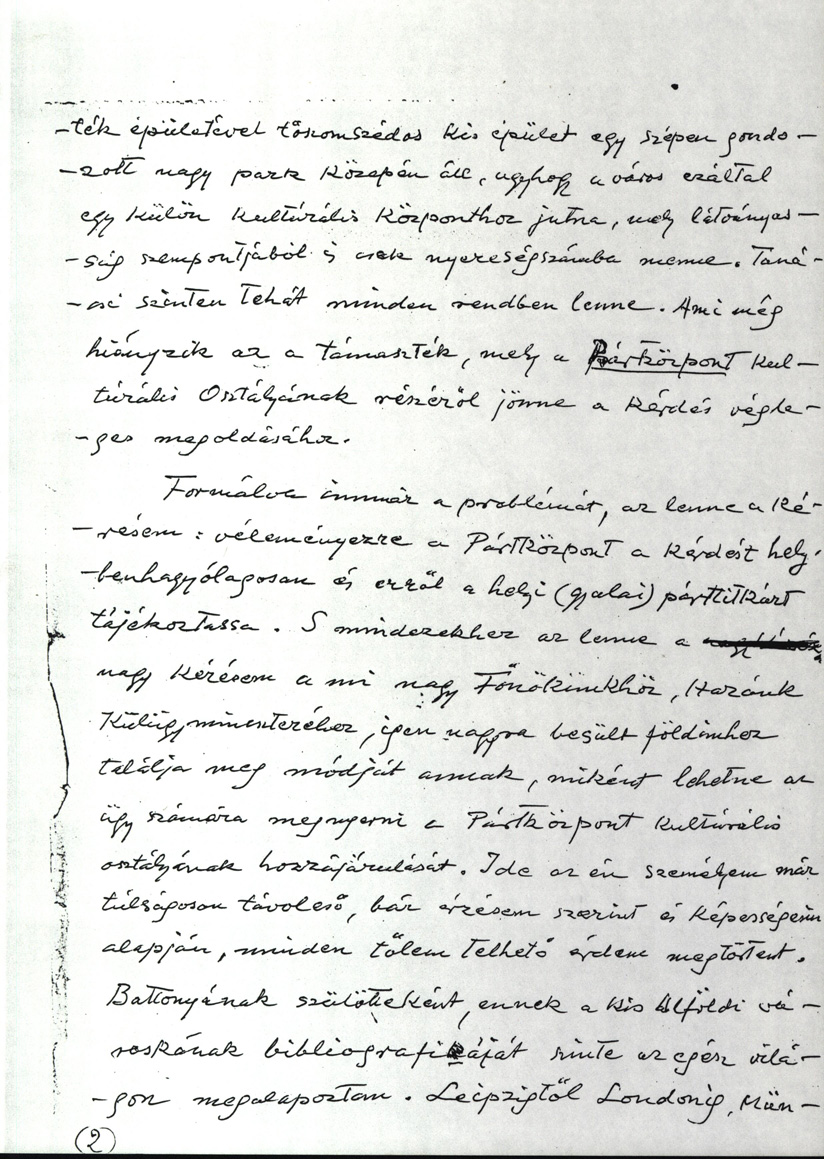 -ték épületével tőszomszédos kis épület egy szépen gondo-
-zott nagy park közepén áll, úgyhogy a város ezáltal
egy külön kultúrális központhoz jutna, mely látványos-
-ság szempontjából is csak nyereségszámba menne. Taná-
-csi szinten tehát minden rendben lenne. Ami még
hiányzik az a támaszték, mely a Pártközpont kul-
túrális Osztályának részéről jönne a kérdés végle-
-ges megoldásához.
Formálva immár a problémát, az lenne a ké-
-résem: véleményezze a Pártközpont a kérdést hely-
-benhagyólagosan és erről a helyi (gyulai) párttitkárt
tájékoztassa. S mindezekhez az lenne a
nagy kérésem a mi nagy Főnökünkhöz, Hazánk
Külügyminiszteréhez, igen nagyra becsült földimhez
találja meg módját annak, miként lehetne az
ügy számára megnyerni a Pártközpont kultúrális
osztályának hozzájárulását. Ide az én személyem már
túlságosan távoleső, bár érzésem szerint és képességeim
alapján, minden tőlem telhető érdem megtörtent.
Battonyának szülötteként, ennek a kis Alföldi vá-
roskának bibliografiáját szinte az egész vilá-
-gon megalapoztam. Leipzigtől Londonig, Mün-
(2)